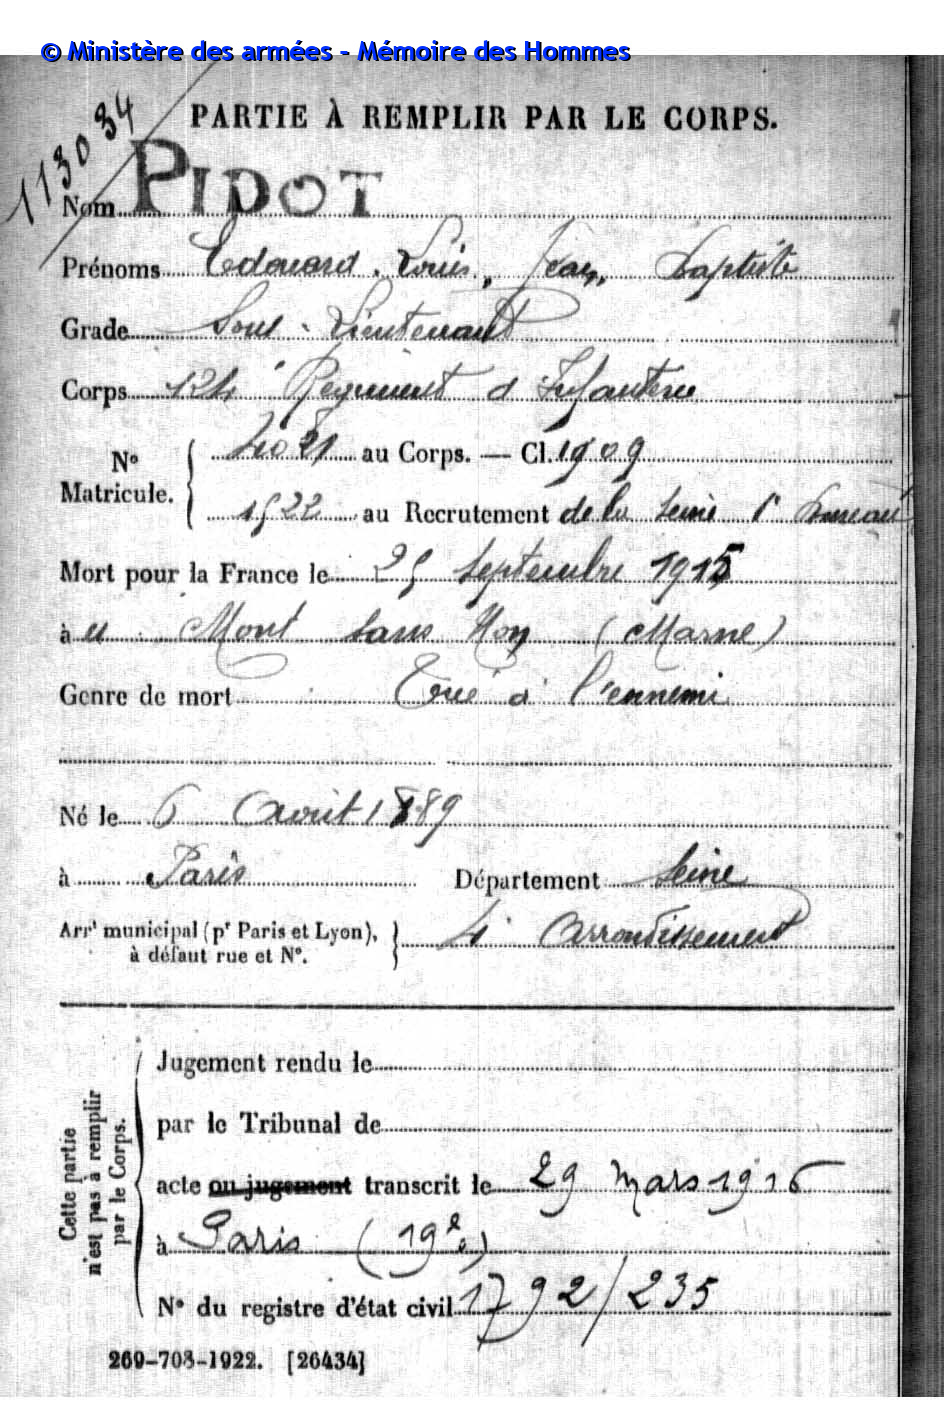 © Ministère des armées - Mémoire des Hommes
113034
PARTIE À REMPLIR PAR LE CORPS.
Nom PIDOT
Prénoms Edouard. Louis, Jean, Baptiste
Grade Sous-Lieutenant
Corps 124e Régiment d'Infanterie
No Matricule. { au Corps. — Cl. 1909
1522 au Recrutement de la Seine 1r Bureau
Mort pour la France le 25 Septembre 1915
à u Mont Sans Nom (Marne)
Genre de mort Tué à l'ennemi
Né le 6 Août 1889
à Paris Département Seine
Arrt municipal (pr Paris et Lyon), } 4e Arrondissement
à défaut rue et No.
Cette partie n'est pas à remplir par le Corps.
Jugement rendu le
par le Tribunal de
acte ou jugement transcrit le 29 mars 1916
à Paris (19e)
No du registre d'état civil 1792/235
269-708-1922. [26434]